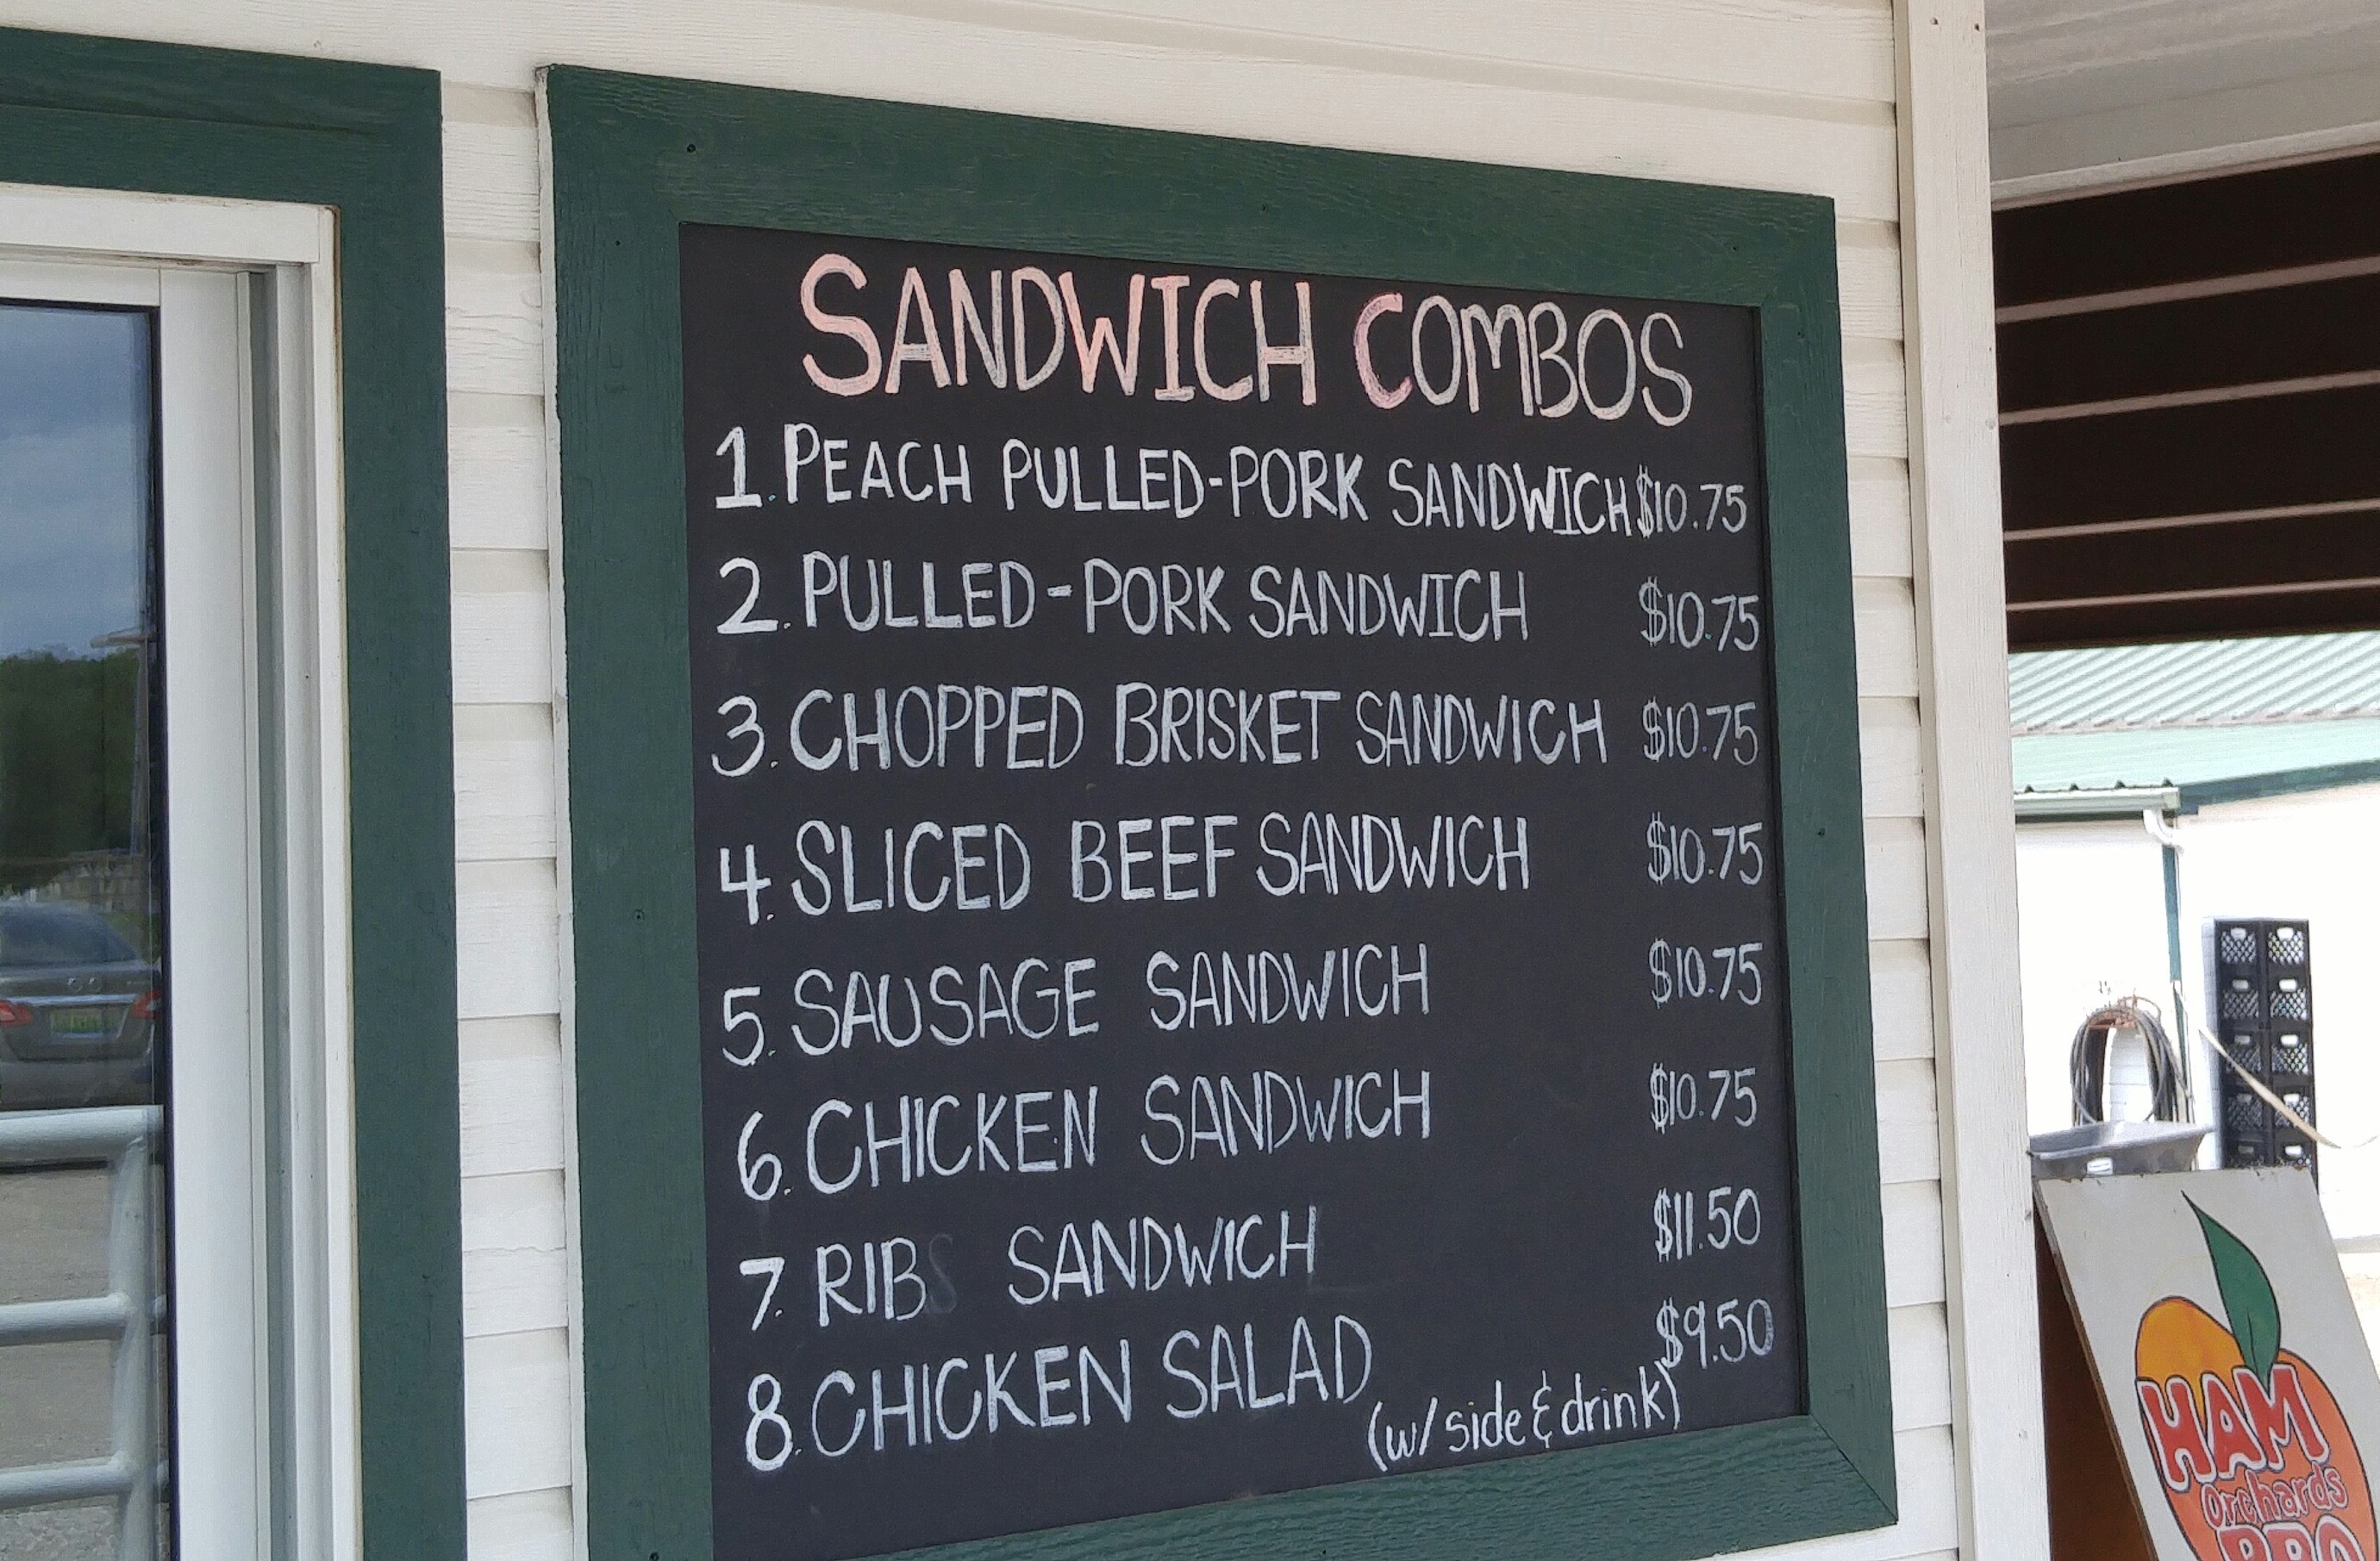 SANDWICH COMBOS
1. PEACH PULLED-PORK SANDWICH $10.75
2. PULLED-PORK SANDWICH $10.75
3. CHOPPED BRISKET SANDWICH $10.75
4. SLICED BEEF SANDWICH $10.75
5. SAUSAGE SANDWICH $10.75
6. CHICKEN SANDWICH $10.75
7. RIB SANDWICH $11.50
8. CHICKEN SALAD $9.50
(w/ side & drink)
HAM
Orchards
BBQ